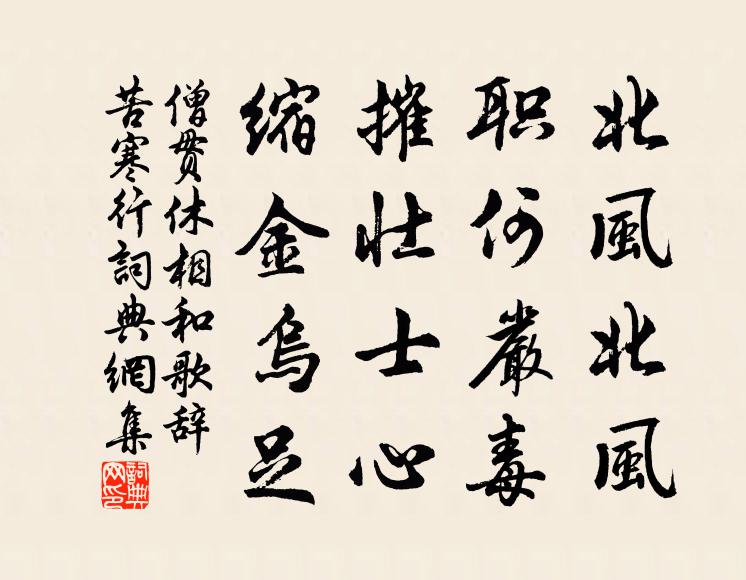 北風北風
职何嚴毒
摧壮士心
缩金烏足
僧贯休相和歌辞
苦寒行詞典網集
詞典網印